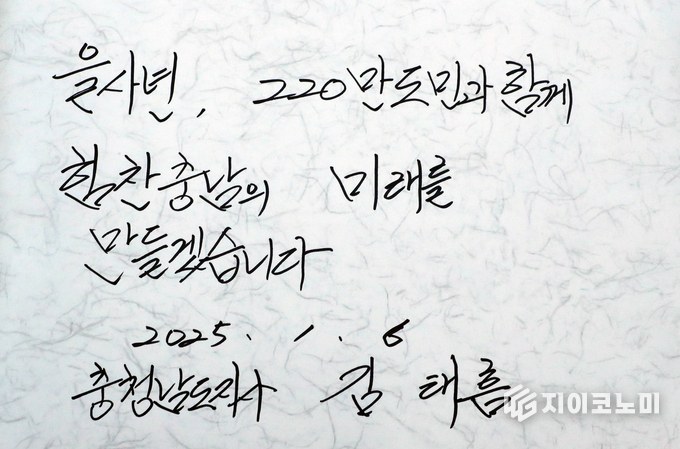 을사년, 220만도민과 함께
힘찬충남의 미래를
만들겠습니다
2025. 1. 6
충청남도지사 김 태흠
지이코노미